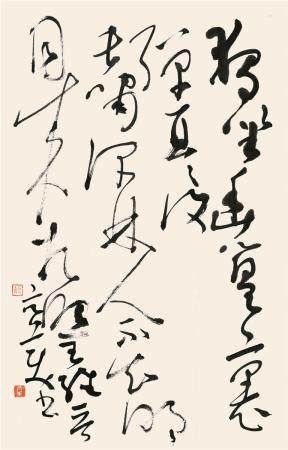 獨坐幽篁裏
彈琴復
長嘯深林人不知明
月來相照王維